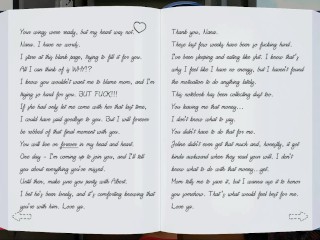 Your wings were ready, but my heart was not.
Nana. I have no words.
I stare at this blank page, trying to fill it for you.
All I can think of is WHY!?
I know you wouldn't want me to blame mom, and I'm
trying so hard for you. BUT FUCK!!!
If she had only let me come with her that last time,
I could have said goodbye to you. But I will forever
be robbed of that final moment with you.
You will live on forever in my head and heart.
One day - I'm coming up to join you, and I'll tell
you about everything you've missed.
Until then, make sure you party with Albert.
I bet he's been lonely, and it's comforting knowing that
you're with him. Love ya.
Thank you, Nana.
These last few weeks have been so fucking hard.
I've been sleeping and eating like shit. I know that's
why I feel like I have no energy, but I haven't found
the motivation to do anything lately.
This notebook has been collecting dust too.
You leaving me that money...
I don't know what to say.
You didn't have to do that for me.
didn't even get that much and, honestly, it got
kinda awkward when they read your will. I don't
know what to do with that money...yet.
Mom tells me to save it, but I wanna use it to honor
you somehow. That's what would feel best for me.
Love ya.